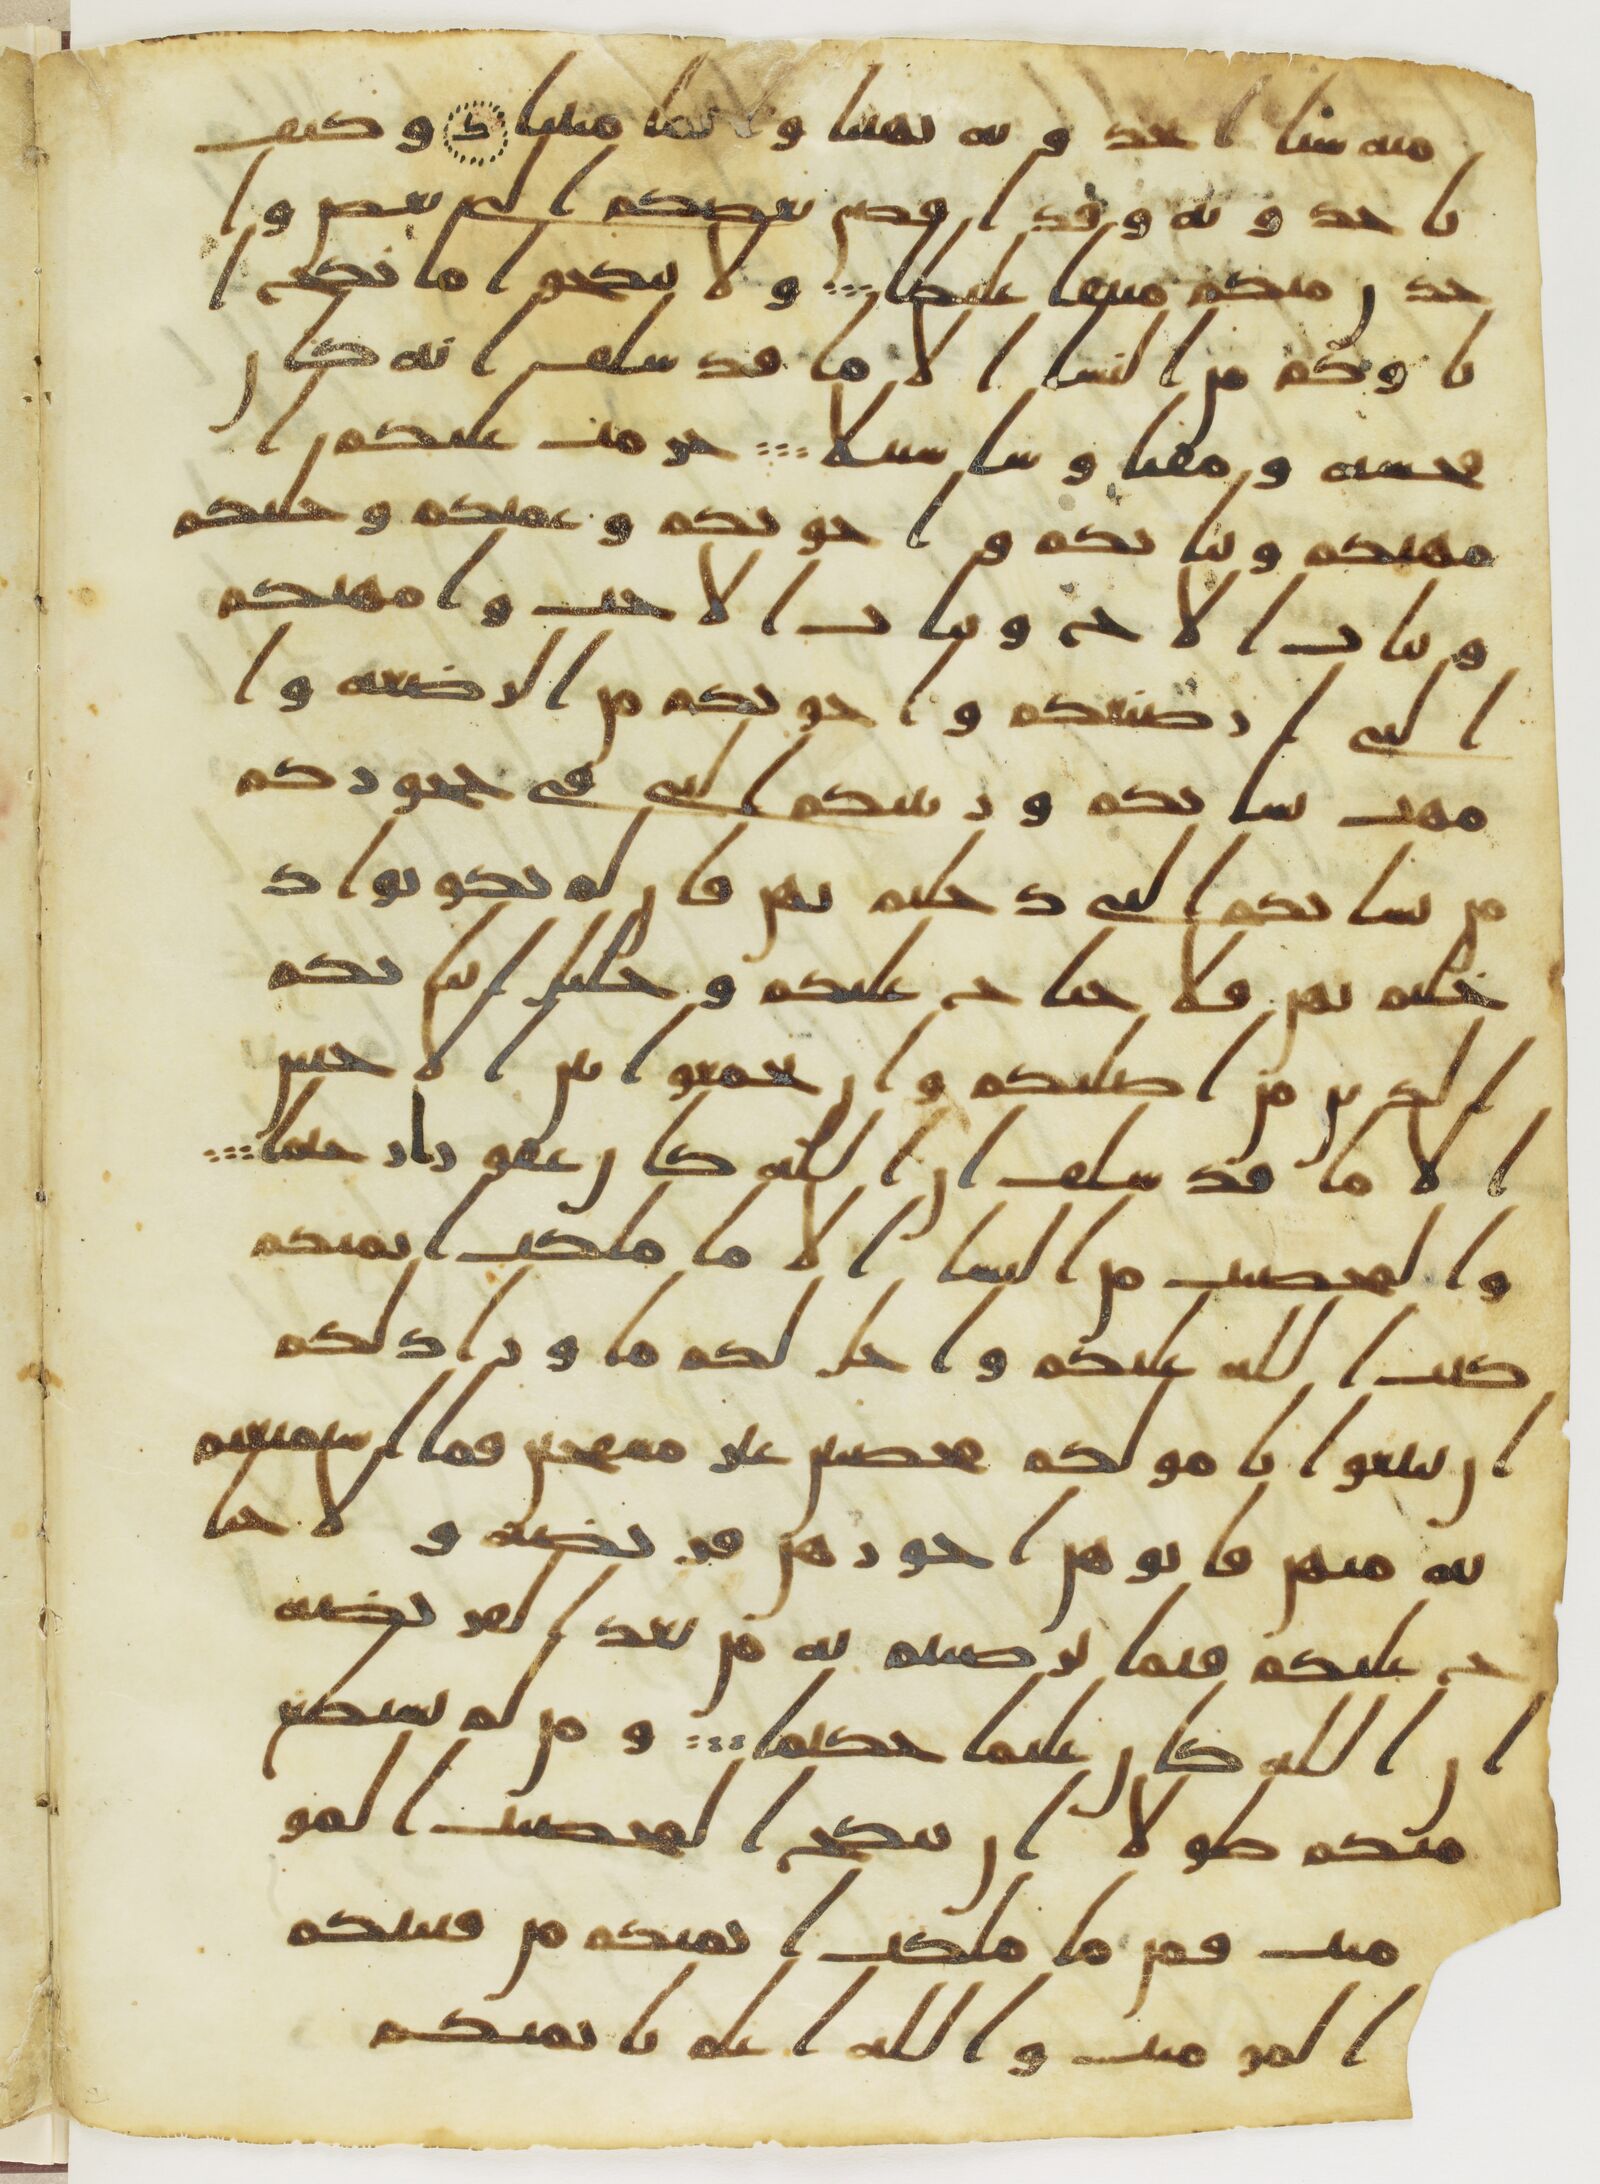 منه شيا اتخذونه بهتنا واثما مبينا وكيف
تاخذونه وقد افضى بعضكم الى بعض وا
خذن منكم ميثقا غليظا ولا تنكحوا ما نكح ا
باوكم من النسا الا ما قد سلف انه كان
فحشه ومقتا وسا سبيلا حرمت عليكم ا
مهتكم وبناتكم واخوتكم وعمتكم وخلتكم
وبنات الاخ وبنات الاخت وامهتكم
التي ارضعنكم واخوتكم من الرضعه وا
مهت نسائكم وربئبكم التي في حجوركم
من نسائكم التي دخلتم بهن فان لم تكونوا د
خلتم بهن فلا جناح عليكم وحلئل ابنائكم
الذين من اصلبكم وان تجمعوا بين الاختين
الا ما قد سلف ان الله كان غفورا رحيما
والمحصنت من النسا الا ما ملكت ايمنكم
كتب الله عليكم واحل لكم ما ورا ذلكم
ان تبتغوا بامولكم محصنين غير مسفحين فما استمتعتم
به منهن فاتوهن اجورهن فريضه ولا جنا
ح عليكم فيما ترضيتم به من بعد الفريضه
ان الله كان عليما حكيما ومن لم يستطع
منكم طولا ان ينكح المحصنت المو
منت فمن ما ملكت ايمنكم من فتيتكم
المومنت والله اعلم بايمنكم